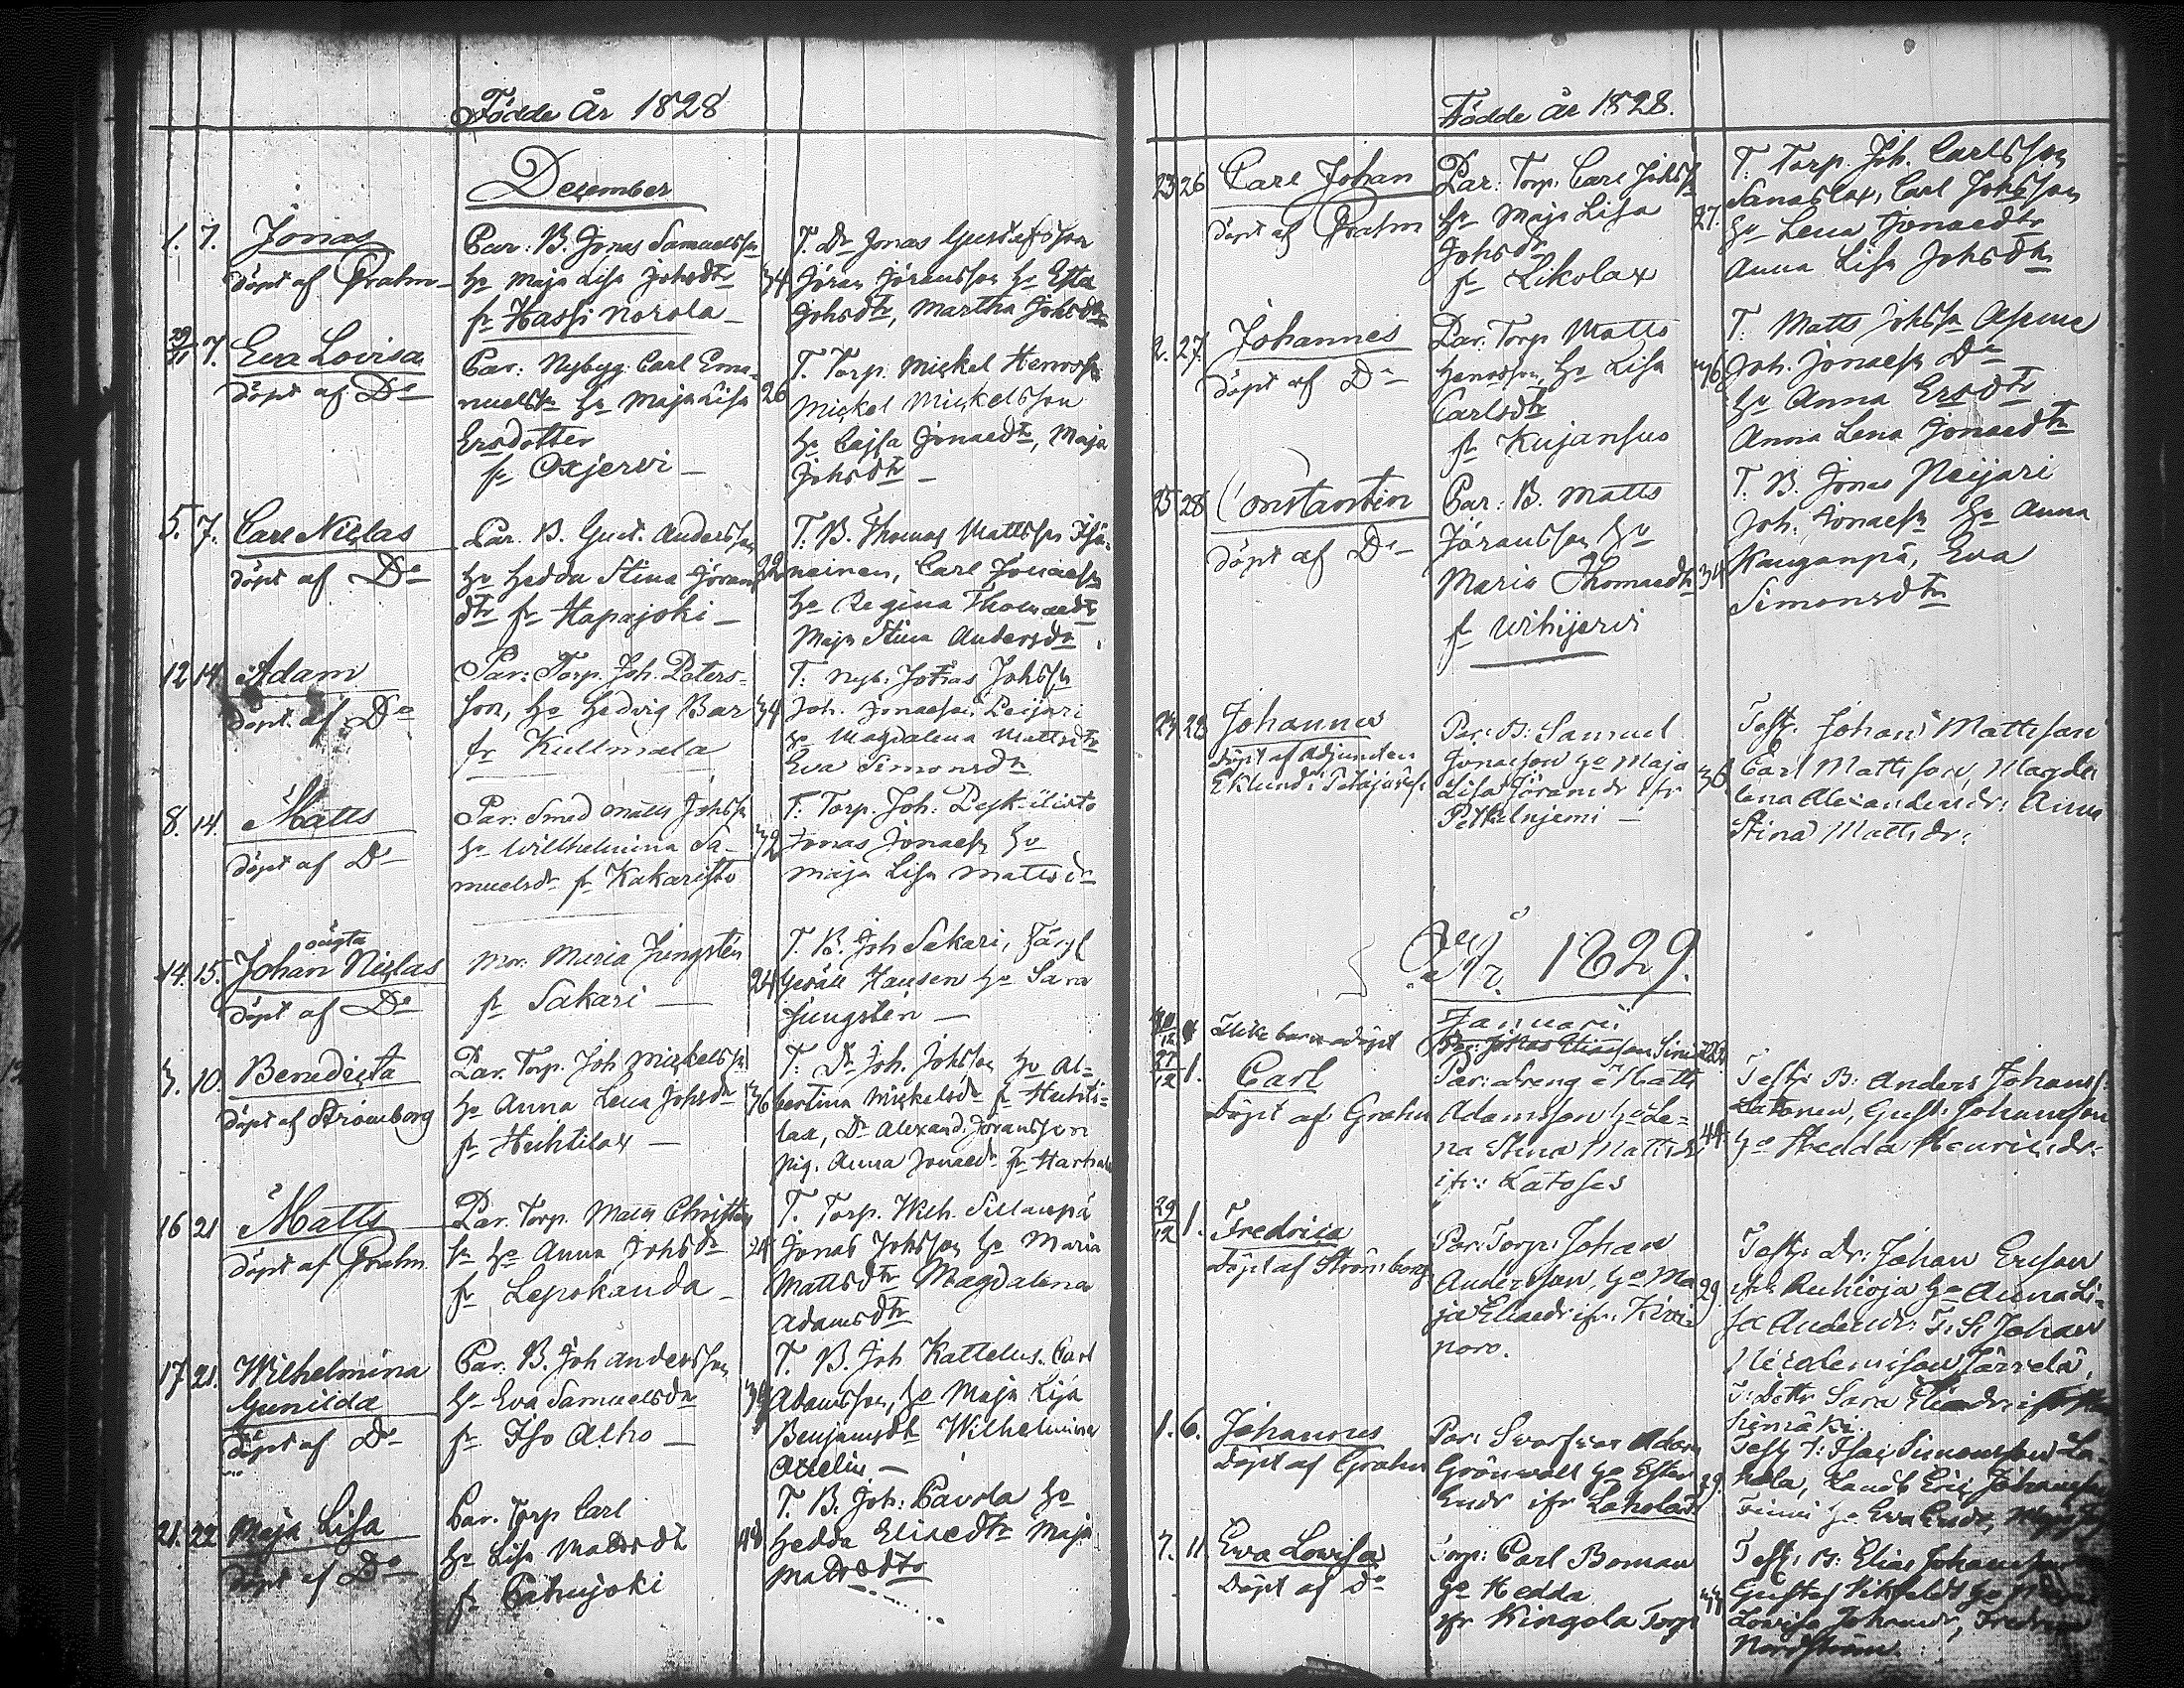 Födde År 1828
December
1. 7. Jonas
döpt af Grahn
Par: B. Jonas Samuelsson
Ho Maja Lisa Johsdtr
fr Hassi Norola
34
T. Dr Jonas Gustafsson
Jöran Jöransson Ho Esta
Johsdtr, Martha Johsdtr
29/11 7. Eva Lovisa
döpt af Do
Par: Nybyg: Carl Ema-
nuelsson Ho Maja Lisa
Ersdotter
fr Oxjervi
26
T. Torp. Mickel Henrss
Mickel Mickelsson
Ho Cajsa Jonaedtr, Maja
Johsdtr
5. 7. Carl Niclas
döpt af Do
Par. B. Gust. Andersson
Ho Hedda Stina Jörans
dtr fr Hapajoki
22
T. B. Thomas Mattsson
neinen, Carl Jonaesn
Ho Regina Thomaedtr
Maja Stina Andersdtr
12 14 Adam
döpt af Do
Par: Torp. Joh. Peters-
son, Ho Hedvig Bar
fr Kullmala
34
T. Nyb. Johsson
Joh. Jonaeson Peijari
Ho Magdalena Mattsdtr
Eva Simonsdtr
8. 14. Matts
döpt af Do
Par: Smed Matts Johsson
Ho Wilhelmina Sa-
muelsdr fr Kakaristo
32
T. Torp. Joh:
Jonas Jonaesn Ho
Maja Lisa Mattsdr
14. 15. oägta
Johan Niclas
döpt af Do
Mor: Maria Jungstén
fr Sakari
24
T. B. Joh Sakari,
Hansen Ho Sara
Jungstén
3. 10. Benedicta
döpt af Strömborg
Par. Torp. Joh Mickelsson
Ho Anna Lena Johsdr
fr Huhtilax
36
T: Dr Joh. Johsson Ho Al-
bertina Mickelsdr fr Huhti-
lax, Dr Alexand: Jöransson
Pig. Anna Jonaedr fr
16 21 Matts
döpt af Grahn
Par. Torp. Matts Christers
sn Ho Anna Johsdr
fr Lepokanda
24
T. Torp. Wilh. Sillanpä
Jonas Johsson Ho Maria
Mattsdtr Magdalena
Adamsdtr
17 21. Wilhelmina
Gunilda
döpt af Do
Par. B. Joh Andersson
Ho Eva Samuelsdr
fr Iso Alho
T. B. Joh Kattelus. Carl
Adamsson, Ho Maja Lisa
Benjamsdtr Wilhelmina
21. 22 Maja Lisa
döpt af Do
Par. Torp Carl
Ho Lisa Mattsdtr
fr
T. B. Joh: Pavola Ho
Hedda Eliaedtr Maja
Mattsdtr
Födde År 1828.
23 26 Carl Johan
döpt af Grahn
Par: Torp. Carl Johsson
Ho Maja Lisa
Johsdr
fr Likolax
27.
T. Torp. Joh. Carlsson
Sanaslax, Carl Johsson
Ho Lena Jonaedtr
Anna Lisa Johsdtr
2. 27. Johannes
döpt af Do
Par: Torp Matts
Henrsson, Ho Lisa
Carlsdtr
fr Kujansuo
36
T. Matts Johsson
Joh. Jonaesn Do
Ho Anna Ersdtr
Anna Lena Jonaedtr
25 28. Constantin
döpt af Do
Par: B. Matts
Jöransson Ho
Maria Thomaedtr
fr Wihijervi
34
T. B. Jonas Peijari
Joh. Jonaesn Ho Anna
Kauganpä, Eva
Simonsdtr
28 Johannes
döpt af Adjuncten
Eklund i
Par: B: Samuel
Jonaeson Ho Maja
Lisa Jöransdr ifr
36.
Test. Johan Mattsson
Carl Mattsson, Magda
lena Alexandersdr: Anna
Stina Mattsdr:
År 1829.
Januari
30/12 döpt
27/12 1. Carl
Döpt af Grahn
Par: Dreng Matts
Adamsson Ho Le-
na Stina Mattsdr
ifr: Latoses
44
Test: B: Anders Johanss:
Latonen, Gust: Johansson
Ho Hedda Henricsdr:
29/12 1. Fredrica
Döpt af Strömborg
Par: Torp: Johan
Andersson, Ho Ma
ja Eliaedr ifr: Kivi
noro.
29.
Test: Dr: Johan Ericson
ifr: Ruhioja Ho Anna Li-
sa Andersdr: T. S. Johan
Nicodemison Järvelä,
T: Dottr Sara Eliaedr: ifr
1. 6. Johannes
Döpt af Grahn
Par: Svarfvar Adam
Grönvall Ho Ester
Ersdr ifr Laholas
29.
Test T: Isac Simonsson La-
hola, Eric Johansson
Ho Eva
7. 11. Eva Lovisa
Döpt af Do
Torp: Carl Boman
Ho Hedda
ifr Kingola Torp
Test: B: Elias Johansson
Gustaf Ho
Lovisa Johansdr, Fredrica
Nordström.